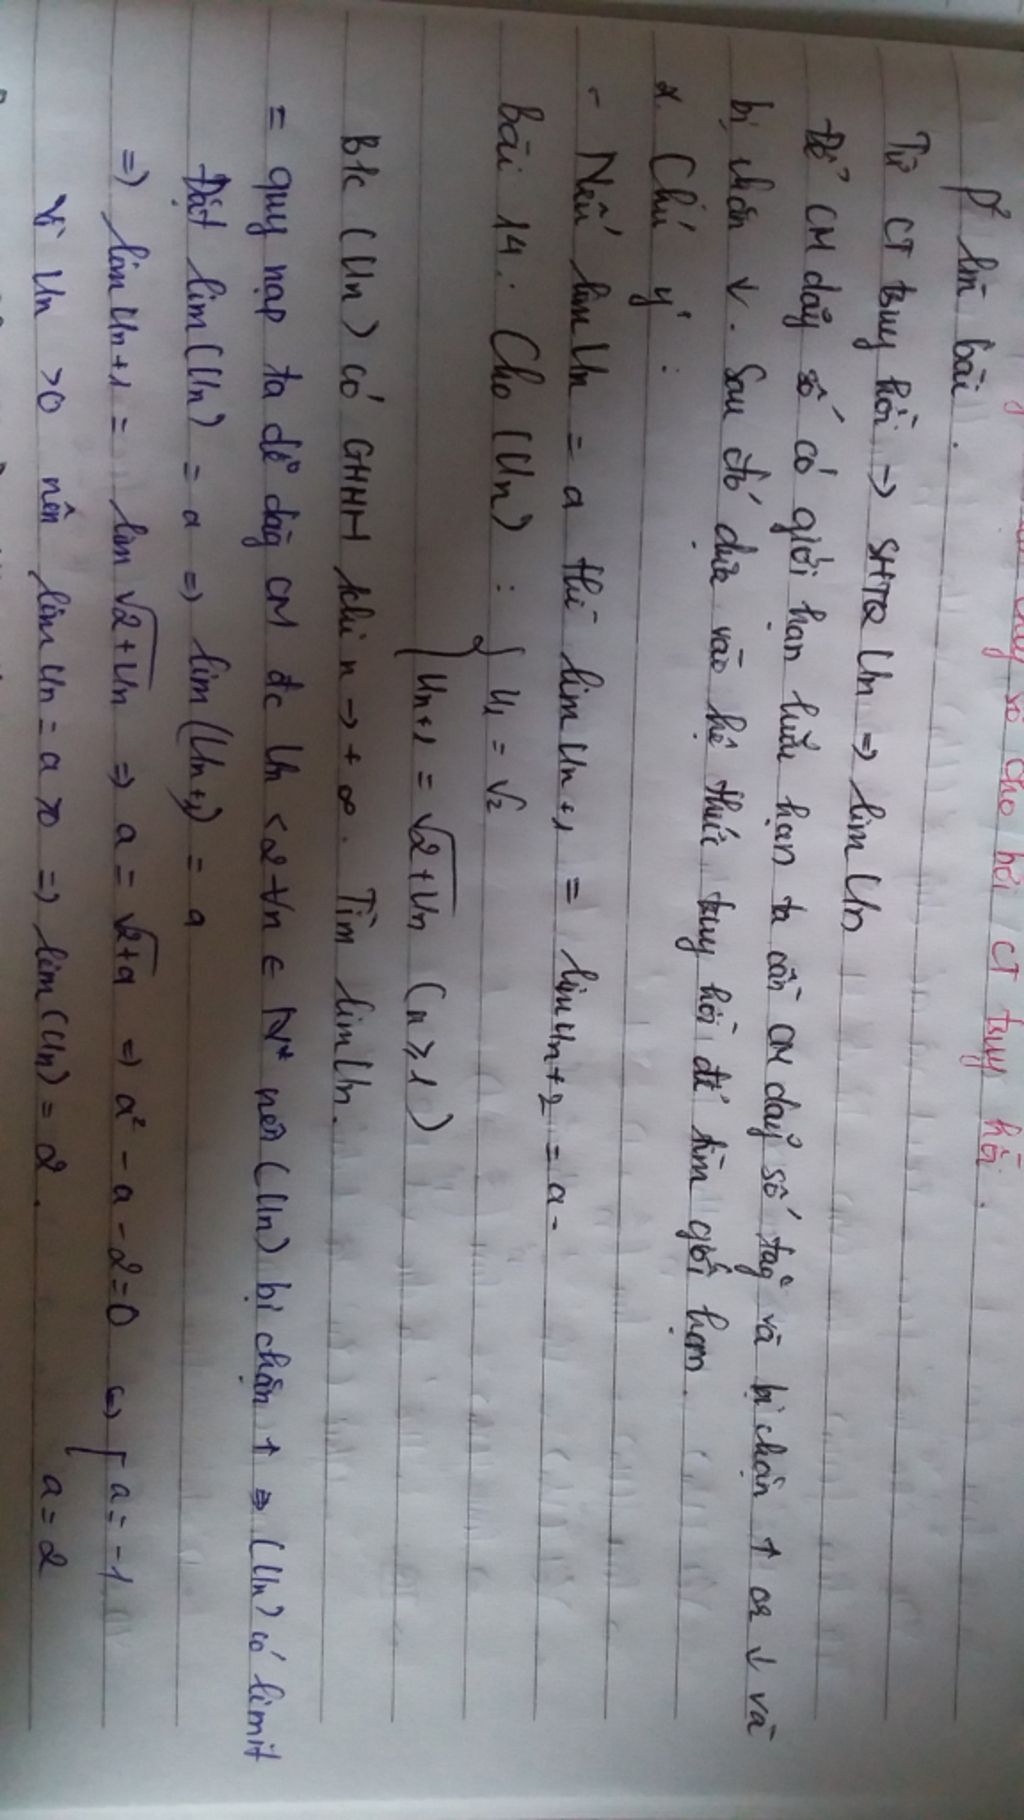 dãy số cho bởi CT truy hồi.
P² làm bài.
Từ CT truy hồi → SHTQ Un ⇒ lim Un
Để CM dãy số có giới hạn hữu hạn ta cần CM dãy số tăg và bị chặn ↑ or ↓ và
bị chặn ↓. Sau đó dựa vào hệ thức truy hồi để tìm giới hạn.
* Chú ý:
- Nếu lim Un = a thì lim Un+1 = lim Un+2 = a.
bài 14. Cho (Un) : { U1 = √2
Un+1 = √2+Un (n ≥ 1)
Btc (Un) có GHHH khi n → +∞. Tìm lim Un.
= quy nạp ta dễ dàg CM đc Un < 2 ∀n ∈ N* nên (Un) bị chặn ↑ ⇒ (Un) có limit
Đặt lim(Un) = a ⇒ lim(Un+1) = a
⇒ lim Un+1 = lim √2+Un ⇒ a = √2+a ⇒ a² - a - 2 = 0 ⇔ [ a = -1
a = 2
Vì Un >0 nên lim Un = a >0 ⇒ lim(Un) = 2.